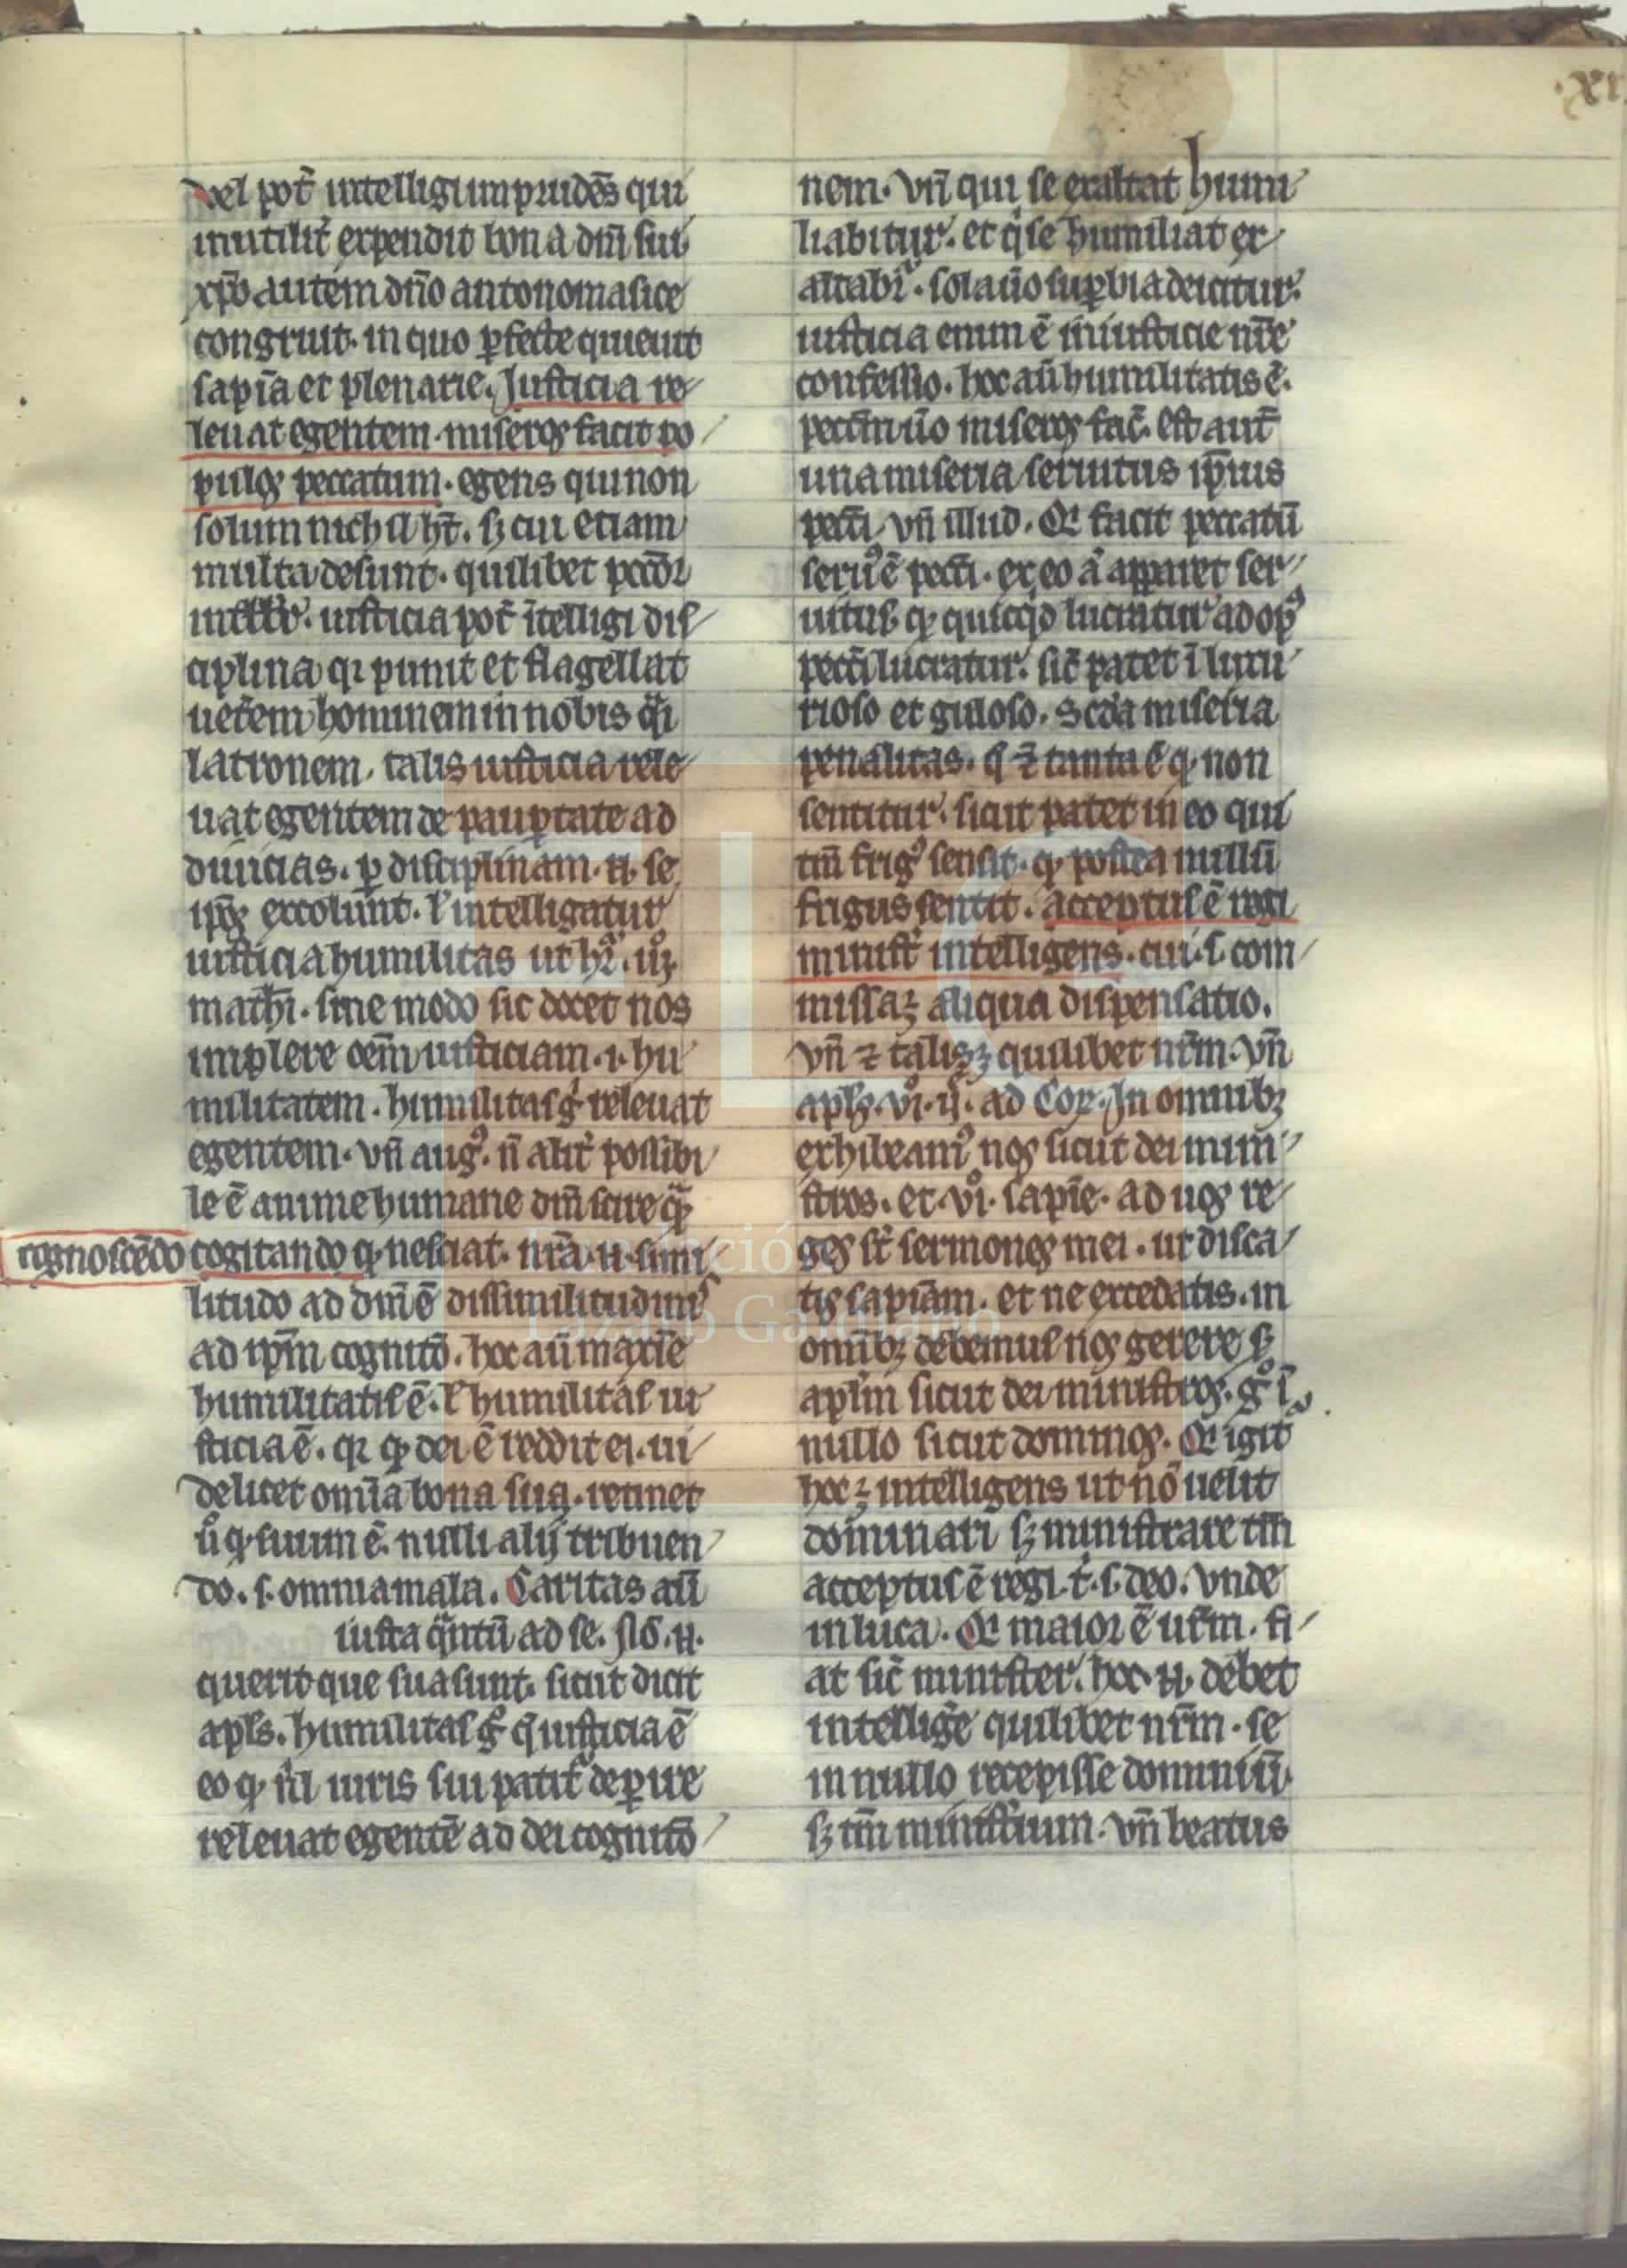 .xi
vel pot̄ intelligi imprudēs qui
inutilit̉ expendit bona dn̄i sui
xp̄o autem dn̄o antonomasice
congruit. in quo ꝑfecte quieuit
sapīa et plenarie. Iusticia re
leuat egentem. miseros facit po
pulos peccatum. egens qui non
solum nichil hꝫ̄. sꝫ cui etiam
multa desunt. quilibet pccōr
iusticia pot̄ ītelligi dis
ciplina qr punit et flagellat
uet̄em hominem in nobis qͣi
latronem. talis iusticia rele
uat egentem de pauꝑtate ad
diuicias. ꝑ disciplinam. n̄. se
ip̄os excolunt. l̉ intelligatur
iusticia humilitas ut hr̄. iijͦ.
math̄i. sine modo sic docet nos
implere oēm iusticiam .i. hu
militatem. humilitas gͦ releuat
egentem. vn̄ augꝰ. n̄ alit̉ possibi
le ē anime humane dn̄m scire qͣꝫ
cognoscēdo cogitando qꝫ nesciat. nr̄a .n̄. simi
litudo ad dm̄ ē dissimilitudinis
ad ip̄m cognitō. hoc aū maxīe
humilitatis ē. l̉ humilitas iu
sticia ē. qr qꝫ dei ē reddit ei. ui
delicet omīa bona sua. retinet
ūͦ qꝫ suum ē. nulli alij tribuen
do .s. omnia mala. Caritas aū
iusta qͣntū ad se. nō .n̄.
querit que sua sunt. sicut dicit
apl̄s. humilitas gͦ q̄ iusticia ē
eo qꝫ nīl iuris sui patit̉ deꝑire
releuat egentē ad dei cognitō
nem. vn̄ qui se exaltat humi
liabitur. et qͥ se humiliat ex
altabr̄. sola ūo suꝑbia deicitur.
iusticia enim ē iniusticie nr̄e
confessio. hoc aū humilitatis ē.
pccm̄ ūo miseros fac̄. est aut̄
una miseria seruitus ip̄ius
pecc̄i. vn̄ illud. Qͥ facit peccatū
seruꝰ ē pecc̄i. ex eo āͤ apparet ser
uitus. qꝫ quicqͥd lucrantur ad opꝰ
pecc̄i lucratur. sic̄ patet ī luxu
rioso et guloso. Scd̄a miseria
penalitas. q̄ ⁊ tanta ē qꝫ non
sentitur. sicut patet in eo qui
tm̄ frigꝰ sensit. qꝫ postea nullū
frigus sentit. acceptus ē regi
minist̉ intelligens. cui .s. com
missa ꝫ aliqua dispensatio.
Vn̄ ⁊ talis ꝫ quilibet nr̄m. vn̄
apl̄s. viͦ. ij. ad Cor. In omnibꝫ
exhibeamꝰ nos sicut dei mini
stros. et. viͦ. sapīe. ad uos re
ges st̄ sermones mei. ut disca
tis sapīam. et ne excedatis. in
omībꝫ debemus nos gerere s̄
apl̄m sicut dei ministros. gͦ ī
nullo sicut dominos. Qͥ igit̉
hoc ꝫ intelligens ut nō uelit
dominari sꝫ ministrare tm̄
acceptus ē regi. t̉ .s. deo. Vnde
in luca. Qͥ maior ē ur̄m. fi
at sic̄ minister. hoc .n̄. debet
intellig̉e quilibet nr̄m. se
in nullo recepisse dominiū
sꝫ tm̄ minist̉ium. vn̄ beatus
Fundación
Lázaro Galdiano